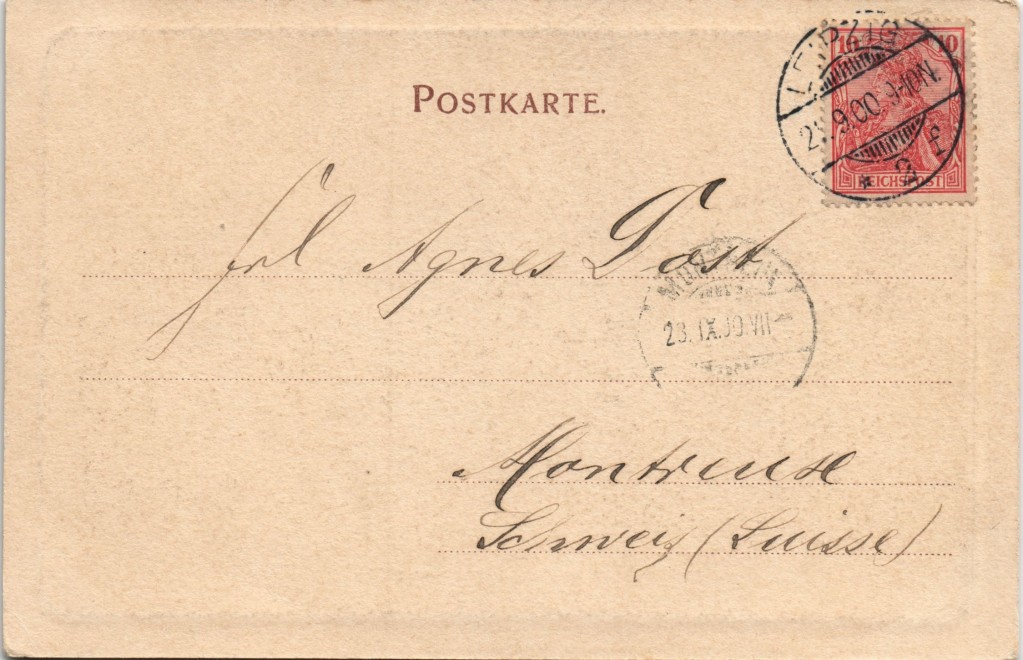 POSTKARTE.
10 10
REICHSPOST
LEIPZIG
9.00. 9-10N.
Frl Agnes Post
MONTREUX
23.IX.00.VII
Montreux
Schweiz (Suisse)